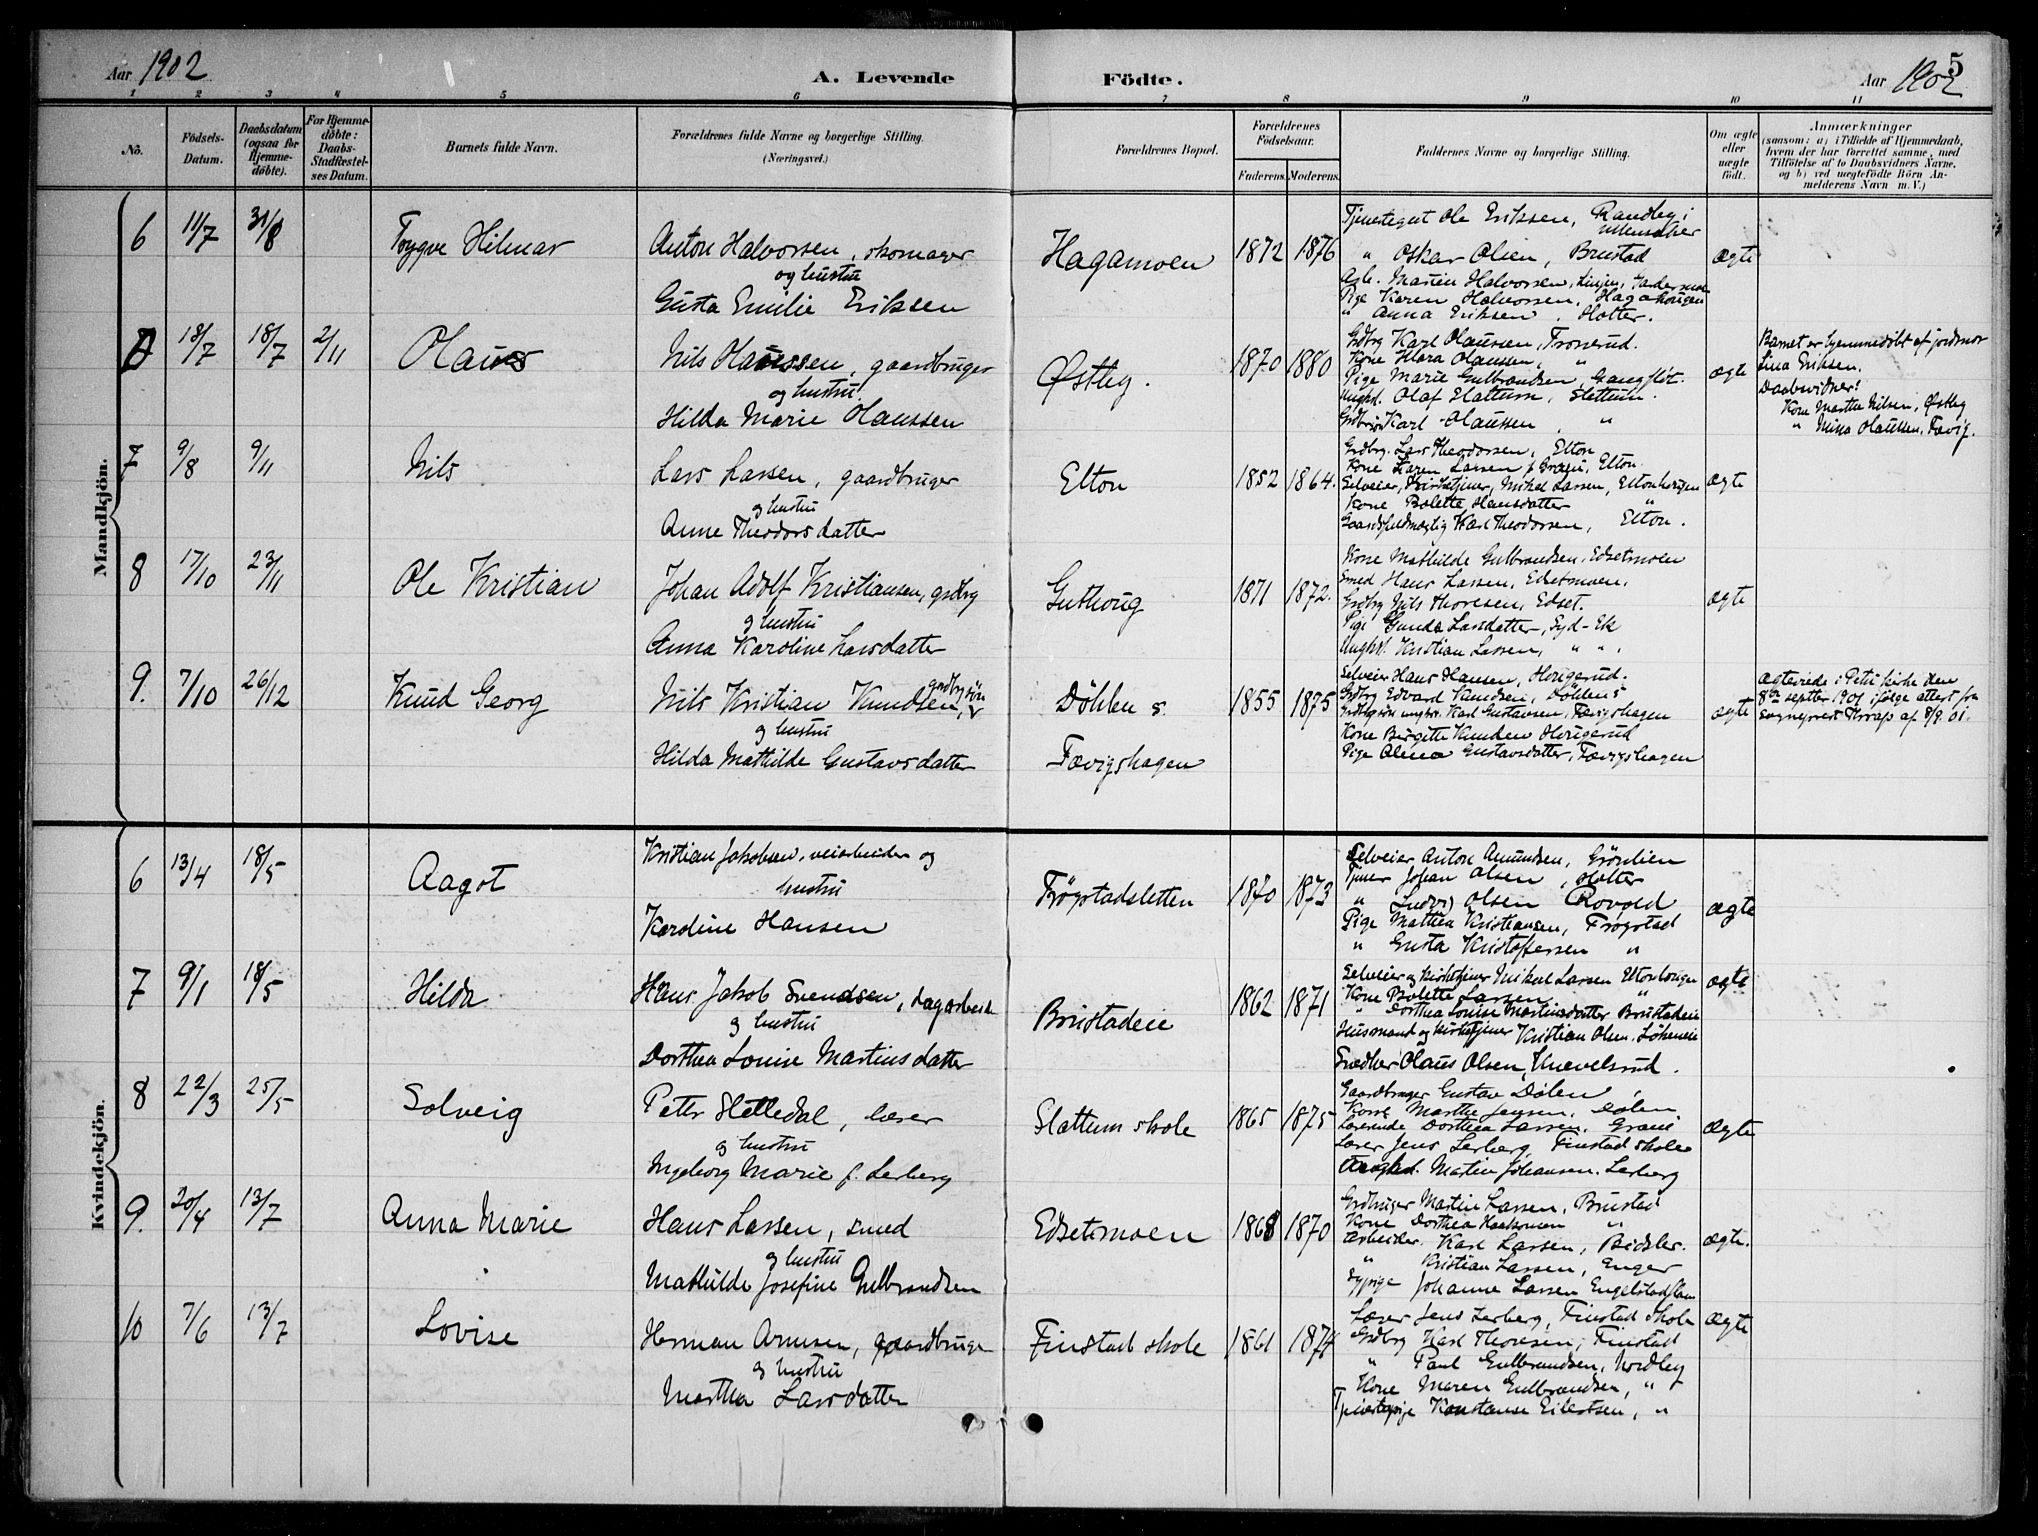 5
Aar 1902 A. Levende Födte. Aar 1902
1 2 3 4 5 6 7 8 9 10 11
No.
Födsels-Datum.
Daabsdatum (ogsaa for Hjemme-döbte).
For Hjemme-döbte: Daabs-Stadfæstel-ses Datum.
Barnets fulde Navn.
Forældrenes fulde Navne og borgerlige Stilling.
(Næringsvei.)
Forældrenes Bopæl.
Forældrenes Födselsaar.
Faderens. Moderens.
Faddernes Navne og borgerlige Stilling.
Om ægte eller uægte födt.
Anmærkninger
(saasom: a) i Tilfælde af Hjemmedaab,
hvem der har forrettet samme, med
Tilföielse af to Daabsvidners Navne,
og b) ved uægtefödte Börn An-
melderens Navn m. V.)
Mandkjön.
6 11/7 31/8 Trygve Hilmar
Anton Halvorsen, skomager
og hustru
Gusta Emilie Eriksen
Hagamoen 1872 1876
Tjenestegut Ole Eriksen, Randby i
Ullensaker
" Oskar Olsen, Brustad
Pige Karen Halvorsen, Hagahougen
" Anna Eriksen, Holter.
ægte
18/7 18/7 2/11 Olaus
Nils Olaussen, gaardbruger
og hustru
Hilda Marie Olaussen
Østby. 1870 1880
Grdbrg Karl Olaussen, Tronerud.
Kone Klara Olaussen, "
Pige Marie Gulbrandsen, Gangfløt.
Ungkl. Olaf Slattum, Slattum.
Karl Olaussen, "
ægte
Barnet er hjemmedøbt af jordmor
Lina Eriksen.
Daabsvidner:
Kone Marthe Nilsen, Østby
" Mina Olaussen, Fævig.
7 9/8 9/11 Nils
Lars Larsen, gaardbruger
og hustru
Anne Theodorsdatter
Elton 1852 1864.
Grdbrg. Lars Theodorsen, Elton
Kone Karen Larsen f. Grani, Elton.
Selveier, Kirketjener, Mikel Larsen, Eltonhougen
Kone Bolette Hansdatter "
Gaardsfuldmægtig Karl Theodorsen, Elton.
ægte
8 17/10 23/11 Ole Kristian
Johan Adolf Kristiansen, grdbrg
og hustru
Anna Karoline Larsdatter
Guthoug 1871 1872.
Kone Mathilde Gulbrandsen, Edsetmoen
Smed Hans Larsen, Edsetmoen.
Grdbrg Nils Thoresen, Edset.
Pige Gunda Larsdatter, Syd-Ek
Ungkl. Kristian Larsen, " ".
ægte
9. 7/10 26/12 Knud Georg
Nils Kristian Knudsen, grdbrgsøn
og hustru
Hilda Mathilde Gustavsdatter
Døhlen s.
Fævigshagen
1855 1875
Selveier Hans Hansen, Horigsrud.
Grdbrg Edvard Knudsen, Døhlen s
Grdbrgsøn ungkr. Karl Gustavsen, Fævigshagen
Kone Birgitte Knudsen Horigsrud
Pige Olena Gustavsdatter, Fævigshagen
ægte
Ægteviede i Petri kirke den
8de septbr 1901 ifølge attest fra
sogneprest Knaap af 8/9. 01.
Kvindekjön.
6 13/4 18/5 Aagot
Kristian Jakobsen, veiarbeider og
hustru
Karoline Hansen
Frøgstadsletten 1870 1873
Selveier Anton Amundsen, Grönlien
Tjener Johan Olsen, Holter
" Ludvig Olsen Rovold
Pige Mathea Kristiansen, Frogstad
" Gusta Kristoffersen "
ægte
7 9/1 18/5 Hilda
Hans Jakob Svendsen, dagarbeider
og hustru
Dorthea Louise Martinsdatter
Brustadeie 1862 1871
Selveier og kirketjener Mikael Larsen Eltonhougen
Kone Bolette Larsen "
" Dorthea Louise Martinsdatter Brustadeie
Husmand og kirketjener Kristian Olsen, Løkeneie
Snedker Olaus Olsen, Knevelsrud.
ægte
8 22/3 25/5 Solveig
Peter Helledal, lærer
og hustru
Ingeborg Marie f. Lerberg
Slattum skole 1865 1875
Gaardbruger Gustav Dølen,
Kone Marthe Jensen, Dølen
Lærerinde Dorthea Larsen, Grani
Lærer Jens Lerberg, Finstad skole
Ungkl. Martin Johansen Lerberg
ægte
9. 20/4 13/7 Anna Marie
Hans Larsen, smed
og hustru
Mathilde Josefine Gulbrandsen
Edsetsmoen 1868 1870
Grdbruger Martin Larsen, Brustad
Kone Dorthea Haakonsen "
Arbeider. Karl Larsen, Bidsler.
" Kristian Larsen, Enger
Sypige Johanne Larsen
ægte.
10 7/6 13/7 Lovise
Herman Arnesen, gaardbruger
og hustru
Marthea Larsdatter
Finstad skole 1861 1874
Lærer Jens Lerberg, Finstad Skole
Grdbrg Karl Thoresen, Finstad
" Paul Gulbrandsen, Nordby
Kone Maren Gulbrandsen, "
Tjenestepige Konstanse Eilertsen, "
ægte